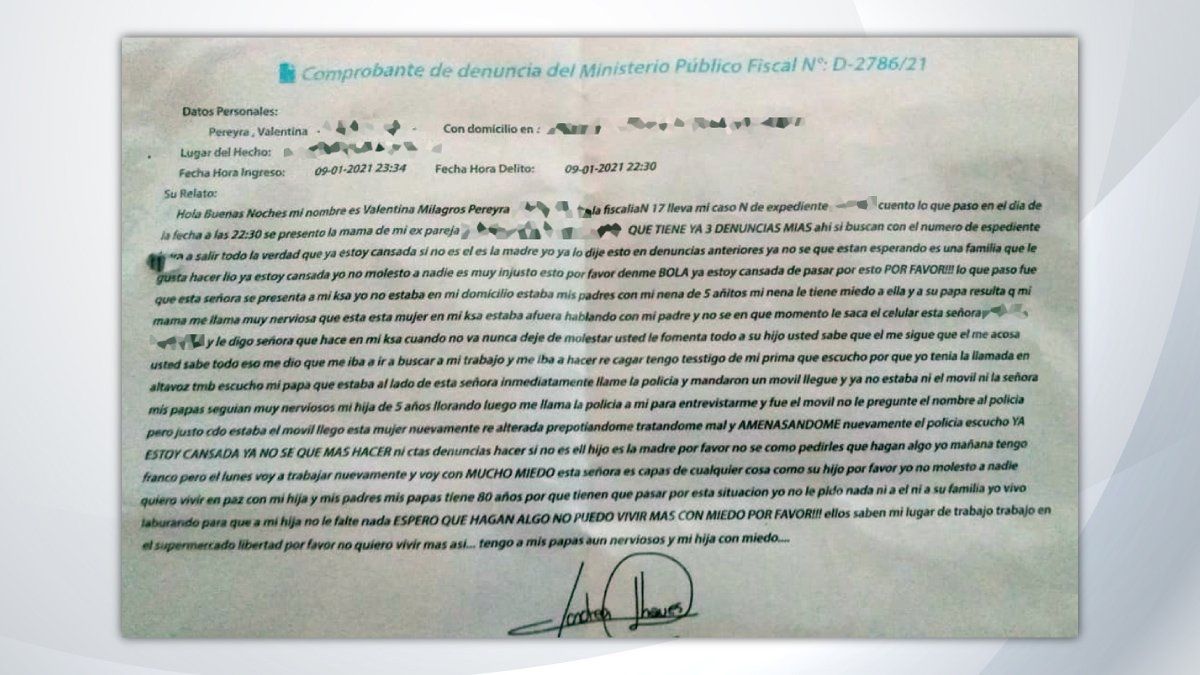 Comprobante de denuncia del Ministerio Público Fiscal N°: D-2786/21
Datos Personales:
Pereyra , Valentina Con domicilio en :
Lugar del Hecho:
Fecha Hora Ingreso: 09-01-2021 23:34 Fecha Hora Delito: 09-01-2021 22:30
Su Relato:
Hola Buenas Noches mi nombre es Valentina Milagros Pereyra la fiscaliaN 17 lleva mi caso N de expediente cuento lo que paso en el dia de
la fecha a las 22:30 se presento la mama de mi ex pareja QUE TIENE YA 3 DENUNCIAS MIAS ahi si buscan con el numero de espediente
va a salir todo la verdad que ya estoy cansada si no es el es la madre yo ya lo dije esto en denuncias anteriores ya no se que estan esperando es una familia que le
gusta hacer lio ya estoy cansada yo no molesto a nadie es muy injusto esto por favor denme BOLA ya estoy cansada de pasar por esto POR FAVOR!!! lo que paso fue
que esta señora se presenta a mi ksa yo no estaba en mi domicilio estaba mis padres con mi nena de 5 añitos mi nena le tiene miedo a ella y a su papa resulta q mi
mama me llama muy nerviosa que esta esta mujer en mi ksa estaba afuera hablando con mi padre y no se en que momento le saca el celular esta señora
y le digo señora que hace en mi ksa cuando no va nunca deje de molestar usted le fomenta todo a su hijo usted sabe que el me sigue que el me acosa
usted sabe todo eso me dio que me iba a ir a buscar a mi trabajo y me iba a hacer re cagar tengo tesstigo de mi prima que escucho por que yo tenia la llamada en
altavoz tmb escucho mi papa que estaba al lado de esta señora inmediatamente llame la policia y mandaron un movil llegue y ya no estaba ni el movil ni la señora
mis papas seguian muy nerviosos mi hija de 5 años llorando luego me llama la policia a mi para entrevistarme y fue el movil no le pregunte el nombre al policia
pero justo cdo estaba el movil llego esta mujer nuevamente re alterada prepotiandome tratandome mal y AMENASANDOME nuevamente el policia escucho YA
ESTOY CANSADA YA NO SE QUE MAS HACER ni ctas denuncias hacer si no es ell hijo es la madre por favor no se como pedirles que hagan algo yo mañana tengo
franco pero el lunes voy a trabajar nuevamente y voy con MUCHO MIEDO esta señora es capas de cualquier cosa como su hijo por favor yo no molesto a nadie
quiero vivir en paz con mi hija y mis padres mis papas tiene 80 años por que tienen que pasar por esta situacion yo no le pido nada ni a el ni a su familia yo vivo
laburando para que a mi hija no le falte nada ESPERO QUE HAGAN ALGO NO PUEDO VIVIR MAS CON MIEDO POR FAVOR!!! ellos saben mi lugar de trabajo trabajo en
el supermercado libertad por favor no quiero vivir mas asi... tengo a mis papas aun nerviosos y mi hija con miedo....